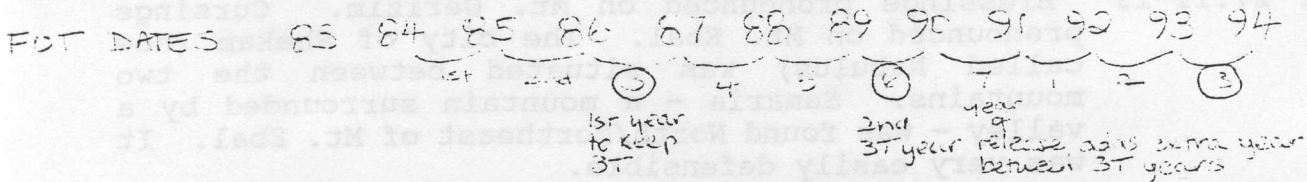 FOT DATES 83 84 85 86 87 88 89 90 91 92 93 94
1st 2nd 3 4 5 6 7 1 2 3
1st year 2nd year of
to keep 3T year release adds extra year
3T between 3T years